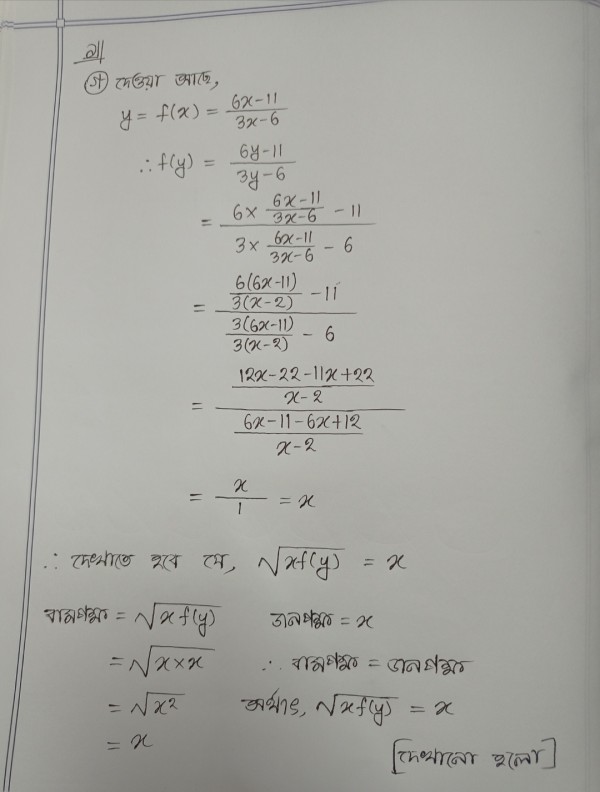 ৯।
(গ) দেওয়া আছে,
y = f(x) = (6x-11)/(3x-6)
∴ f(y) = (6y-11)/(3y-6)
= (6 × (6x-11)/(3x-6) - 11)/(3 × (6x-11)/(3x-6) - 6)
= (6(6x-11)/3(x-2) - 11)/(3(6x-11)/3(x-2) - 6)
= ((12x-22-11x+22)/(x-2))/((6x-11-6x+12)/(x-2))
= x/1 = x
∴ দেখাতে হবে যে, √(xf(y)) = x
বামপক্ষ = √(xf(y)) ডানপক্ষ = x
= √(x×x) ∴ বামপক্ষ = ডানপক্ষ
= √(x²) অর্থাৎ, √(xf(y)) = x
= x
[দেখানো হলো]